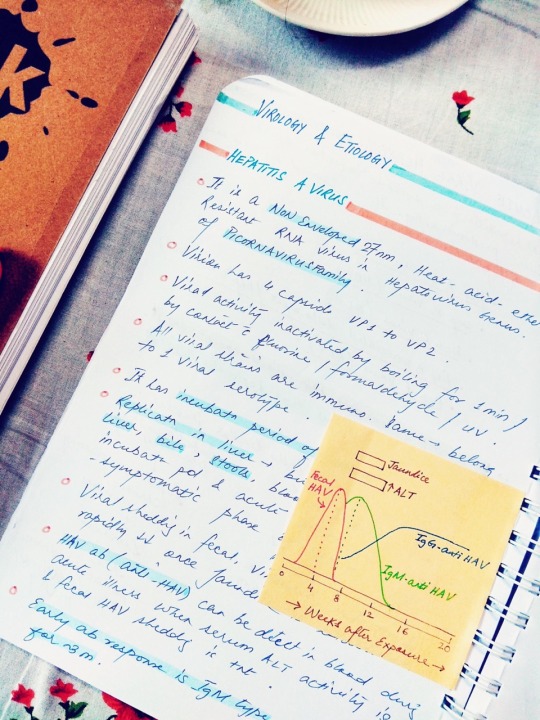 VIROLOGY & ETIOLOGY
HEPATITIS A VIRUS
It is a NON Enveloped 27nm, Heat- acid- ethe
Resistant RNA virus in Hepatovirus Genus.
of PICORNAVIRUS family.
Virion has 4 capsids VP1 to VP2.
Viral activity inactivated by boiling for 1 min /
by contact c̄ / formaldehyde / UV.
All viral strains are immuno. Same → belong
to 1 viral serotype.
It has incubatn period of
Replicatn in liver →
liver, bile, stools, bloo
incubatn pd & acute
-symptomatic phase
Viral shedding in fecal, Vi
rapidly once Jaund
HAV ab (anti-HAV) can be detect in blood during
acute illness when serum ALT activity is
& fecal HAV shedding is
Early ab response is IgM type
for 3m.
Jaundice
↑ALT
Fecal
HAV
IgG-anti HAV
IgM-anti HAV
0 4 8 12 16 20
→ Weeks after Exposure →
K